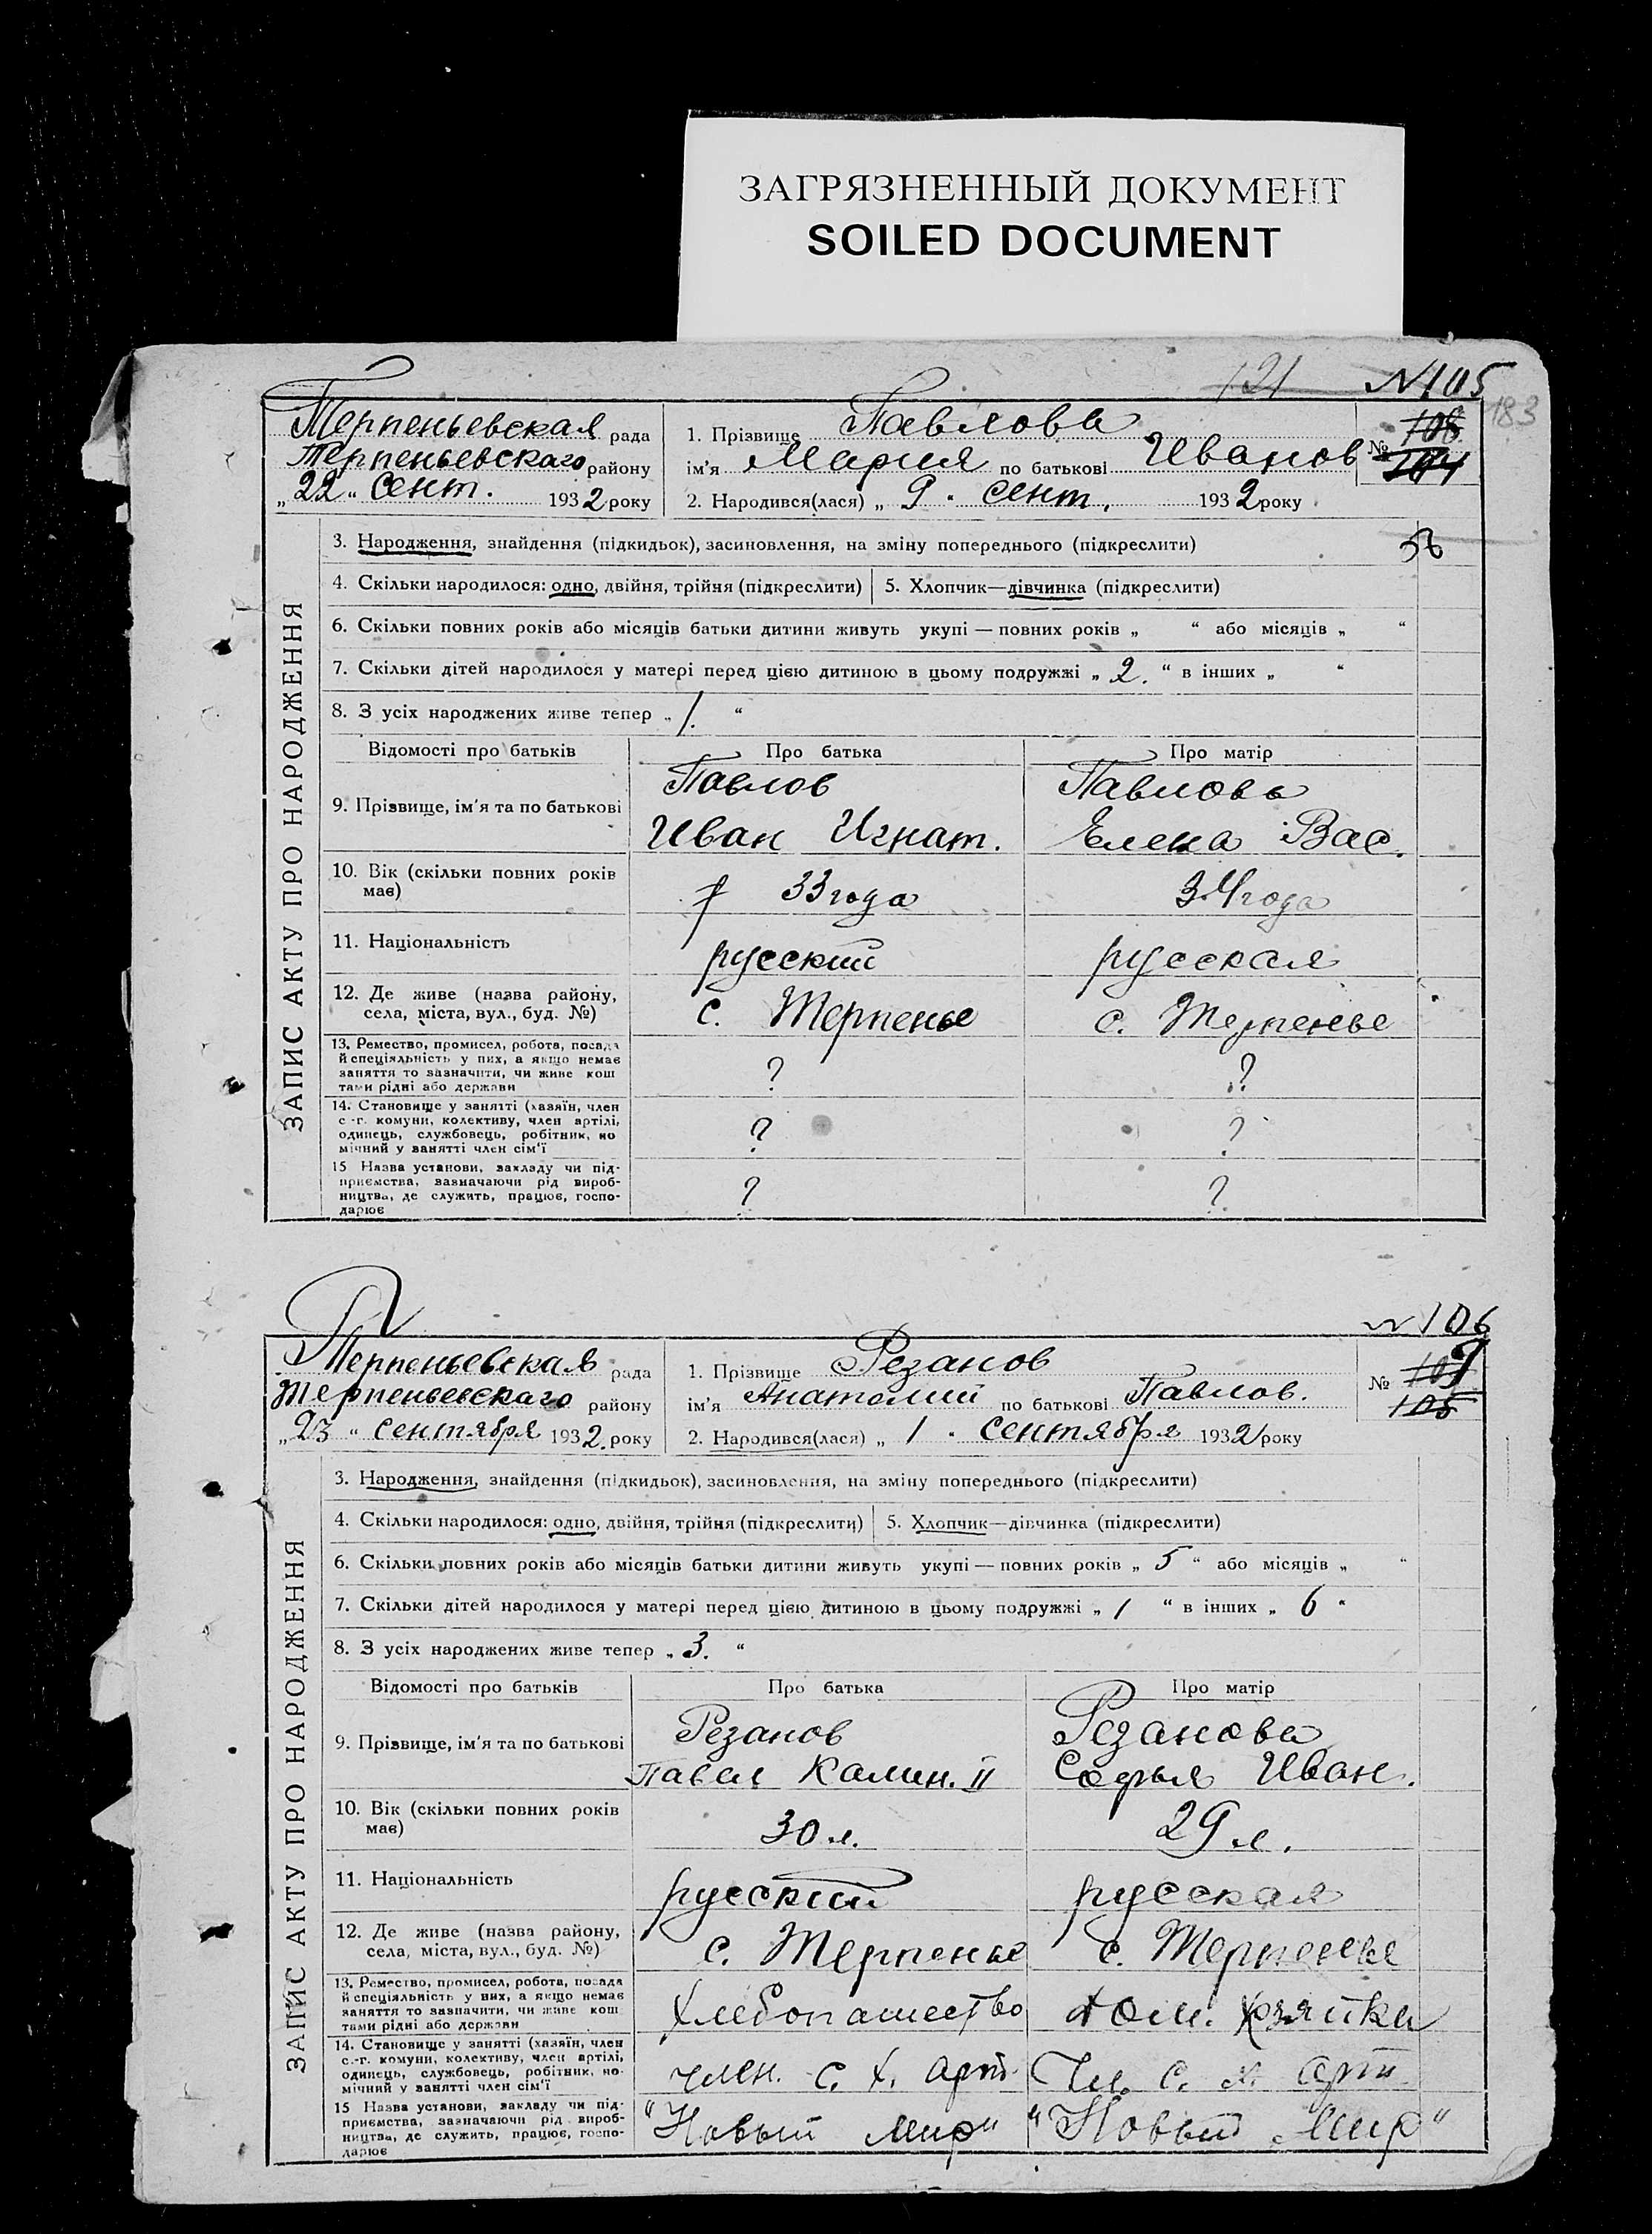 ЗАГРЯЗНЕННЫЙ ДОКУМЕНТ
SOILED DOCUMENT
121 N105
183
Терпеньевская рада
Терпеньевскаго району
„22“ Сент. 1932 року
1. Прізвище Павлова
ім'я Мария по батькові Иванов
2. Народився(лася) „9“ сент. 1932 року
№ 108
104
ЗАПИС АКТУ ПРО НАРОДЖЕННЯ
3. Народження, знайдення (підкидьок), засиновлення, на зміну попереднього (підкреслити)
4. Скільки народилося: одно, двійня, трійня (підкреслити) 5. Хлопчик—дівчинка (підкреслити)
6. Скільки повних років або місяців батьки дитини живуть укупі — повних років „ “ або місяців „ “
7. Скільки дітей народилося у матері перед цією дитиною в цьому подружжі „2.“ в інших „ “
8. З усіх народжених живе тепер „1.“
Відомості про батьків Про батька Про матір
9. Прізвище, ім'я та по батькові
Павлов
Иван Игнат.
Павлова
Елена Вас.
10. Вік (скільки повних років
має)
33 года
34 года
11. Національність
русский
русская
12. Де живе (назва району,
села, міста, вул., буд. №)
с. Терпенье
с. Терпенье
13. Ремество, промисел, робота, посада
й спеціяльність у них, а якщо немає
заняття то зазначити, чи живе кош
тами рідні або держави
?
?
14. Становище у занятті (хазяїн, член
с.-г. комуни, колективу, член артілі,
одинець, службовець, робітник, по
мічний у занятті член сім'ї
?
?
15 Назва установи, закладу чи під-
приємства, зазначаючи рід вироб-
ництва, де служить, працює, госпо-
дарює
?
?
N 106
Терпеньевская рада
Терпеньевскаго району
„23“ сентября 1932. року
1. Прізвище Резанов
ім'я Анатолий по батькові Павлов.
2. Народився(лася) „1“ Сентября 1932 року
№
105
ЗАПИС АКТУ ПРО НАРОДЖЕННЯ
3. Народження, знайдення (підкидьок), засиновлення, на зміну попереднього (підкреслити)
4. Скільки народилося: одно, двійня, трійня (підкреслити) 5. Хлопчик—дівчинка (підкреслити)
6. Скільки повних років або місяців батьки дитини живуть укупі — повних років „5“ або місяців „ “
7. Скільки дітей народилося у матері перед цією дитиною в цьому подружжі „1“ в інших „6“
8. З усіх народжених живе тепер „3.“
Відомості про батьків Про батька Про матір
9. Прізвище, ім'я та по батькові
Резанов
Павел Калин. II
Резанова
Софья Иван.
10. Вік (скільки повних років
має)
30 л.
29 л.
11. Національність
русский
русская
12. Де живе (назва району,
села, міста, вул., буд. №)
с. Терпенье
с. Терпенье
13. Ремество, промисел, робота, посада
й спеціяльність у них, а якщо немає
заняття то зазначити, чи живе кош
тами рідні або держави
Хлебопашество
дом. хзяйка
14. Становище у занятті (хазяїн, член
с.-г. комуни, колективу, член артілі,
одинець, службовець, робітник, по-
мічний у занятті член сім'ї
член. с. х. арт.
Чл. с. х. арт.
15 Назва установи, закладу чи під-
приємства, зазначаючи рід вироб-
ництва, де служить, працює, госпо-
дарює
"Новый мир"
"Новый мир"